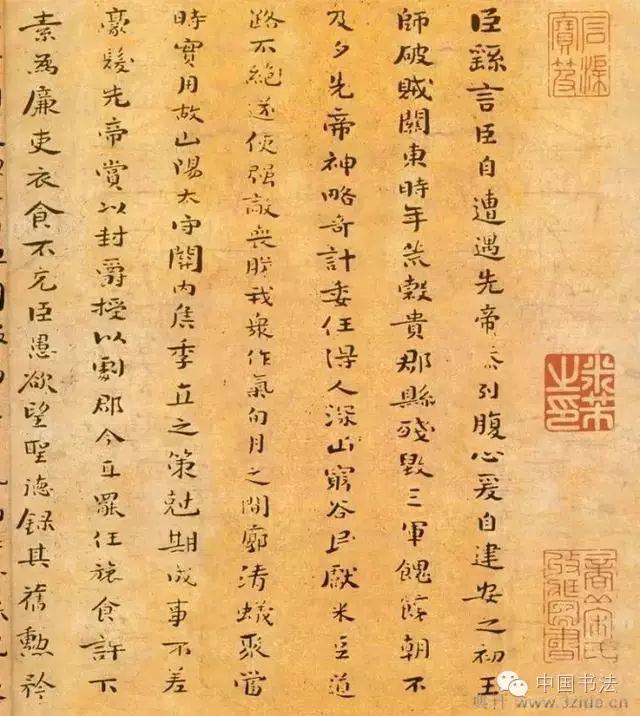 臣繇言臣自遭遇先帝忝列腹心爰自建安之初王
師破賊關東時年荒穀貴郡縣殘毀三軍餽饟朝不
及夕先帝神略奇計委任得人深山窮谷民獻米豆道
路不絕遂使强敵喪膽我衆作氣旬月之間廓清蟻聚當
時實用故山陽太守關內侯季直之策尅期成事不差
豪髮先帝賞以封爵授以劇郡今直罷任旅食許下
素爲廉吏衣食不充臣愚欲望聖德錄其舊勳矜
米芾之印
中国书法
www.3zide.com